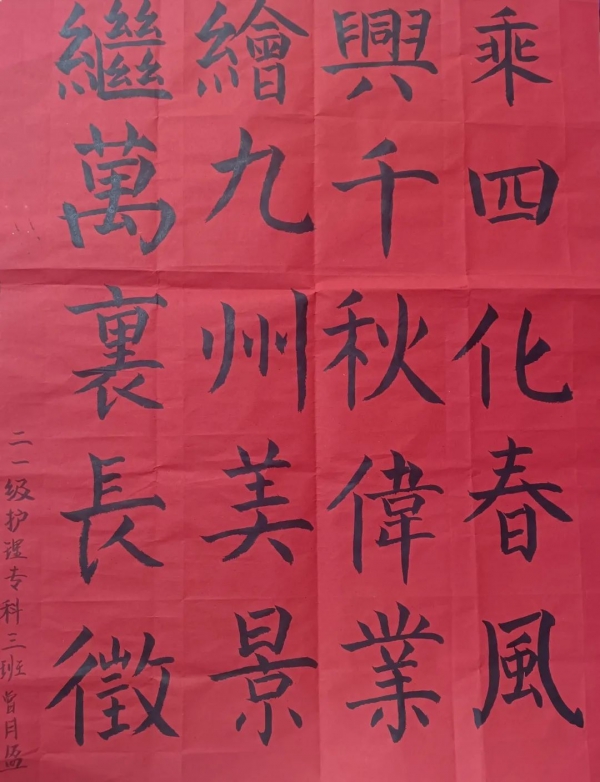 乘四化春風
興千秋偉業
繪九州美景
繼萬裏長徵
二一级护理专科三班曾月